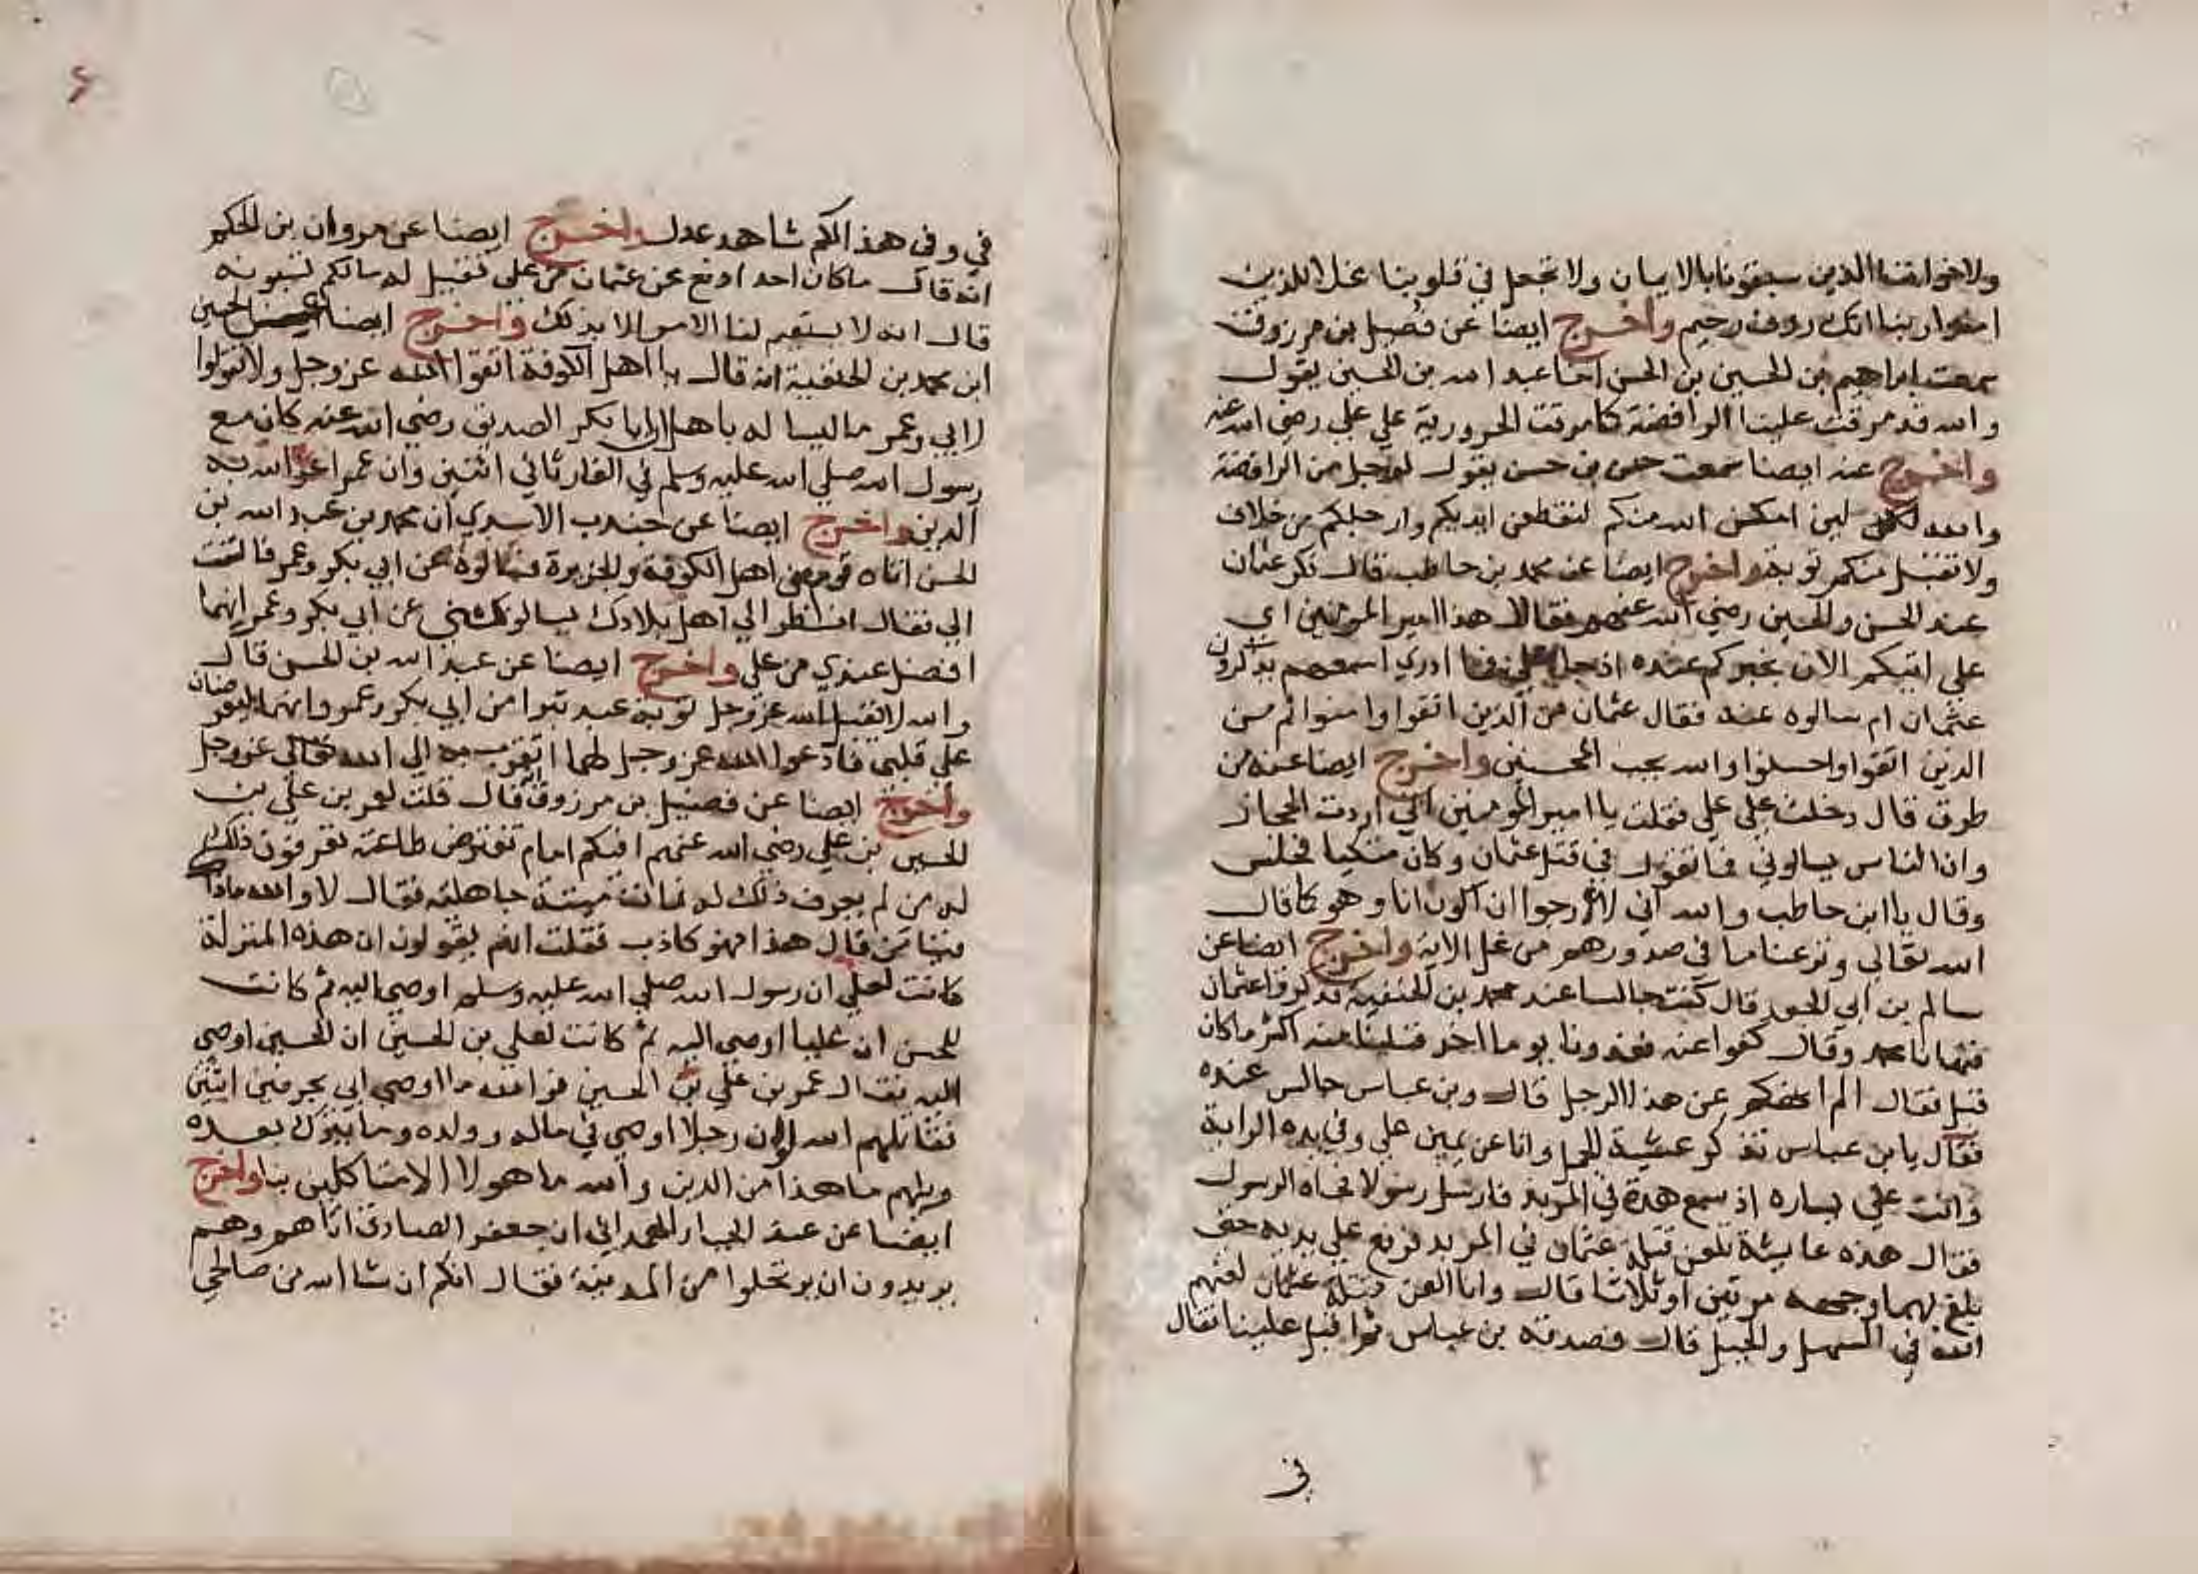 ولاخواننا الذين سبقونا بالايمان ولا تجعل في قلوبنا غلا للذين
امنوا ربنا انك روف رحيم واخرج ايضا عن فضيل بن مرزوق
سمعت ابراهيم بن الحسين بن الحسن اخا عبد الله بن الحسين يقول
والله قد مرقت علينا الرافضة كما مرقت الحرورية علي علي رضي الله عنه
واخرج عنه ايضا سمعت حسن بن حسن يقول لرجل من الرافضة
والله لين امكن الله منكم لنقطعن ايديكم وارجلكم من خلاف
ولا تقبل منكم توبة واخرج ايضا عن محمد بن حاطب قال ذكر عثمان
عند الحسن والحسين رضي الله عنهم فقالا هذا امير المومنين اي
علي اتيكم الان يخبركم عنه اذ جا علي فما ادري اسمعهم يذكرون
عثمان ام سالوه عنه فقال عثمان من الذين اتقوا وامنوا ثم من
الذين اتقوا واحسنوا والله يحب المحسنين واخرج ايضا عنه من
طرق قال دخلت علي علي فقلت يا امير المومنين اني اردت الحجاز
وان الناس يسالوني فما تقول في قتل عثمان وكان متكيا فجلس
وقال يا ابن حاطب والله اني لارجوا ان اكون انا وهو كما قال
الله تعالي ونزعنا ما في صدورهم من غل الاية واخرج ايضا عن
سالم بن ابي الجعد قال كنت جالسا عند محمد بن الحنفية فذكروا عثمان
فنهانا محمد وقال كفوا عنه فغدونا يوما اخر فنلنا منه اكثر ما كان
قبل فقال الم انهكم عن هذا الرجل قال وبن عباس جالس عنده
فقال يا بن عباس تذكر عشية الجمل وانا عن يمين علي وفي يده الراية
وانت علي يساره اذ سمع هدة في المربد فارسل رسولا فجاه الرسول
فقال هذه عايشة تلعن قتلة عثمان في المربد فرفع علي يديه حتى
بلغ بهما وجهه مرتين او ثلاثا قال وانا العن قتلة عثمان لعنهم
الله في السهل والجبل قال فصدقه بن عباس ثم اقبل علينا فقال
في
في وفي هذا لكم شاهد عدل واخرج ايضا عن مروان بن الحكم
انه قال ما كان احد ادفع عن عثمان من علي فقيل له ما لكم تسبونه
قال انه لا يستقيم لنا الامر الا بذلك واخرج ايضا الحسين
ابن محمد بن الحنفية انه قال يا اهل الكوفة اتقوا الله عز وجل ولا تقولوا
لابي وعمر ما ليسا له باهل ان ابا بكر الصديق رضي الله عنه كان مع
رسول الله صلي الله عليه وسلم في الغار ثاني اثنين وان عمر اعز الله به
الدين واخرج ايضا عن جندب الاسدي ان محمد بن عبد الله بن
الحسن اتاه قوم من اهل الكوفة والجزيرة فسالوه عن ابي بكر وعمر فالتفت
الي فقال انظر الي اهل بلادك يسالونني عن ابي بكر وعمر انهما
افضل عندي من علي واخرج ايضا عن عبد الله بن الحسن قال
والله لا يقبل الله عز وجل توبة عبد تبرا من ابي بكر وعمر وانهما ليعرضان
علي قلبي فادعوا الله عز وجل لهما اتقرب به الي الله تعالي عز وجل
واخرج ايضا عن فضيل بن مرزوق قال قلت لعمر بن علي بن
الحسين بن علي رضي الله عنهم افيكم امام تفترض طاعته تعرفون ذلك
له من لم يعرف ذلك له فمات ميتة جاهلية فقال لا والله ماذا
فينا من قال هذا فهو كاذب فقلت انهم يقولون ان هذه المنزلة
كانت لعلي ان رسول الله صلي الله عليه وسلم اوصي اليه ثم كانت
للحسن ان عليا اوصي اليه ثم كانت لعلي بن الحسين ان الحسين اوصي
اليه فقال عمر بن علي بن الحسين فوالله ما اوصي ابي بحرفين اثنين
فقاتلهم الله لو ان رجلا اوصي في ماله وولده وما يترك بعده
ويلهم ما هذا من الدين والله ما هولا الا متاكلين بنا واخرج
ايضا عن عبد الجبار الهمداني ان جعفر الصادق اتاهم وهم
يريدون ان يرتحلوا من المدينة فقال انكم ان شا الله من صالحي